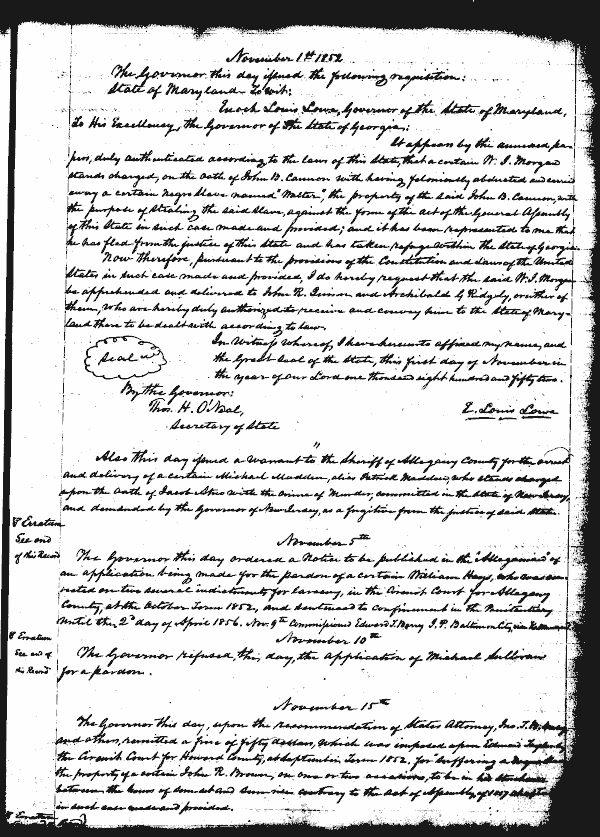 November 1st 1852
The Governor this day issued the following requisition:
State of Maryland To Wit:
Enoch Louis Lowe, Governor of the State of Maryland,
To His Excellency, the Governor of the State of Georgia:
It appears by the annexed pa-
pers, duly authenticated according to the laws of this State, that a certain W. I. Morgan
stands charged, on the oath of John B. Cannon with having feloniously abducted and carried
away a certain negro Slave named "Walter", the property of the said John B. Cannon, with
the purpose of Stealing the said Slave, against the form of the act of the General Assembly
of this State in such case made and provided; and it has been represented to me that
he has fled from the justice of this State and has taken refuge within the State of Georgia
Now Therefore, pursuant to the provisions of the Constitution and Laws of the United
States in such case made and provided, I do hereby request that the said W. I. Morgan
be apprehended and delivered to John R. and Archibald G Ridgely, or either of
them, who are hereby duly authorized to receive and convey him to the State of Mary-
land there to be dealt with according to law.
In Witness whereof, I have hereunto affixed my name, and
the Great Seal of the State, this first day of November in
the year of our Lord one thousand eight hundred and fifty two.
Seal
By the Governor:
Thos. H. O'Neal,
Secretary of State
E. Louis Lowe
"
Also this day issued a warrant to the Sheriff of Allegany County for the arrest
and delivery of a certain Michael Madden, alias Patrick Madden, who stands charged
upon the oath of Jacob with the crime of Murder, committed in the State of New Jersey,
and demanded by the Governor of New Jersey, as a fugitive from the justice of said State.
November 5th
Erratum
See end
of this Record
The Governor this day ordered a Notice to be published in the "Alleganian" of
an application being made for the pardon of a certain William Hays, who was con-
victed on two several indictments for Larceny, in the Circuit Court for Allegany
County, at the October Term 1852, and sentenced to confinement in the Penitentiary
until the 2d day of April 1856. Nov. 9th Commissioned Edward T. J. P. Baltimore City,
November 10th
Erratum
See end of
this Record
The Governor refused, this day, the application of Michael Sullivan
for a pardon.
November 15th
The Governor this day, upon the recommendation of States Attorney, Jno. T.
and others, remitted a fine of fifty dollars, which was imposed upon Edward by
the Circuit Court for Howard County, at September Term 1852, for suffering a
the property of a certain John R. Brown, on one or two occasions, to be in his
between the hours of sunset and sunrise contrary to the act of Assembly, of 1807
in such case made and provided.
Erratum